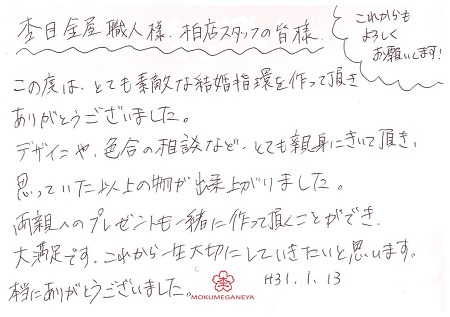 杢目金屋 職人様、柏店スタッフの皆様
これからも
よろしく
お願いします!
この度は、とても素敵な結婚指環を作って頂き
ありがとうございました。
デザインや、色合の相談など、とても親身にきいて頂き、
思っていた以上の物が出来上がりました。
両親へのプレゼントも一緒に作って頂くことができ、
大満足です。これから一生大切にしていきたいと思います。
本当にありがとうございました。
MOKUMEGANEYA
H31.1.13